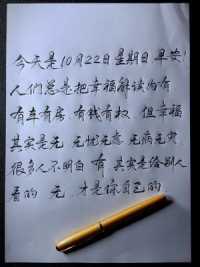 今天是10月22日星期日 早安!
人们总是把幸福解读为有
有车有房 有钱有权 但幸福
其实是无 无忧无虑 无病无灾
很多人不明白 有 其实是给别人
看的 无 才是你自己的